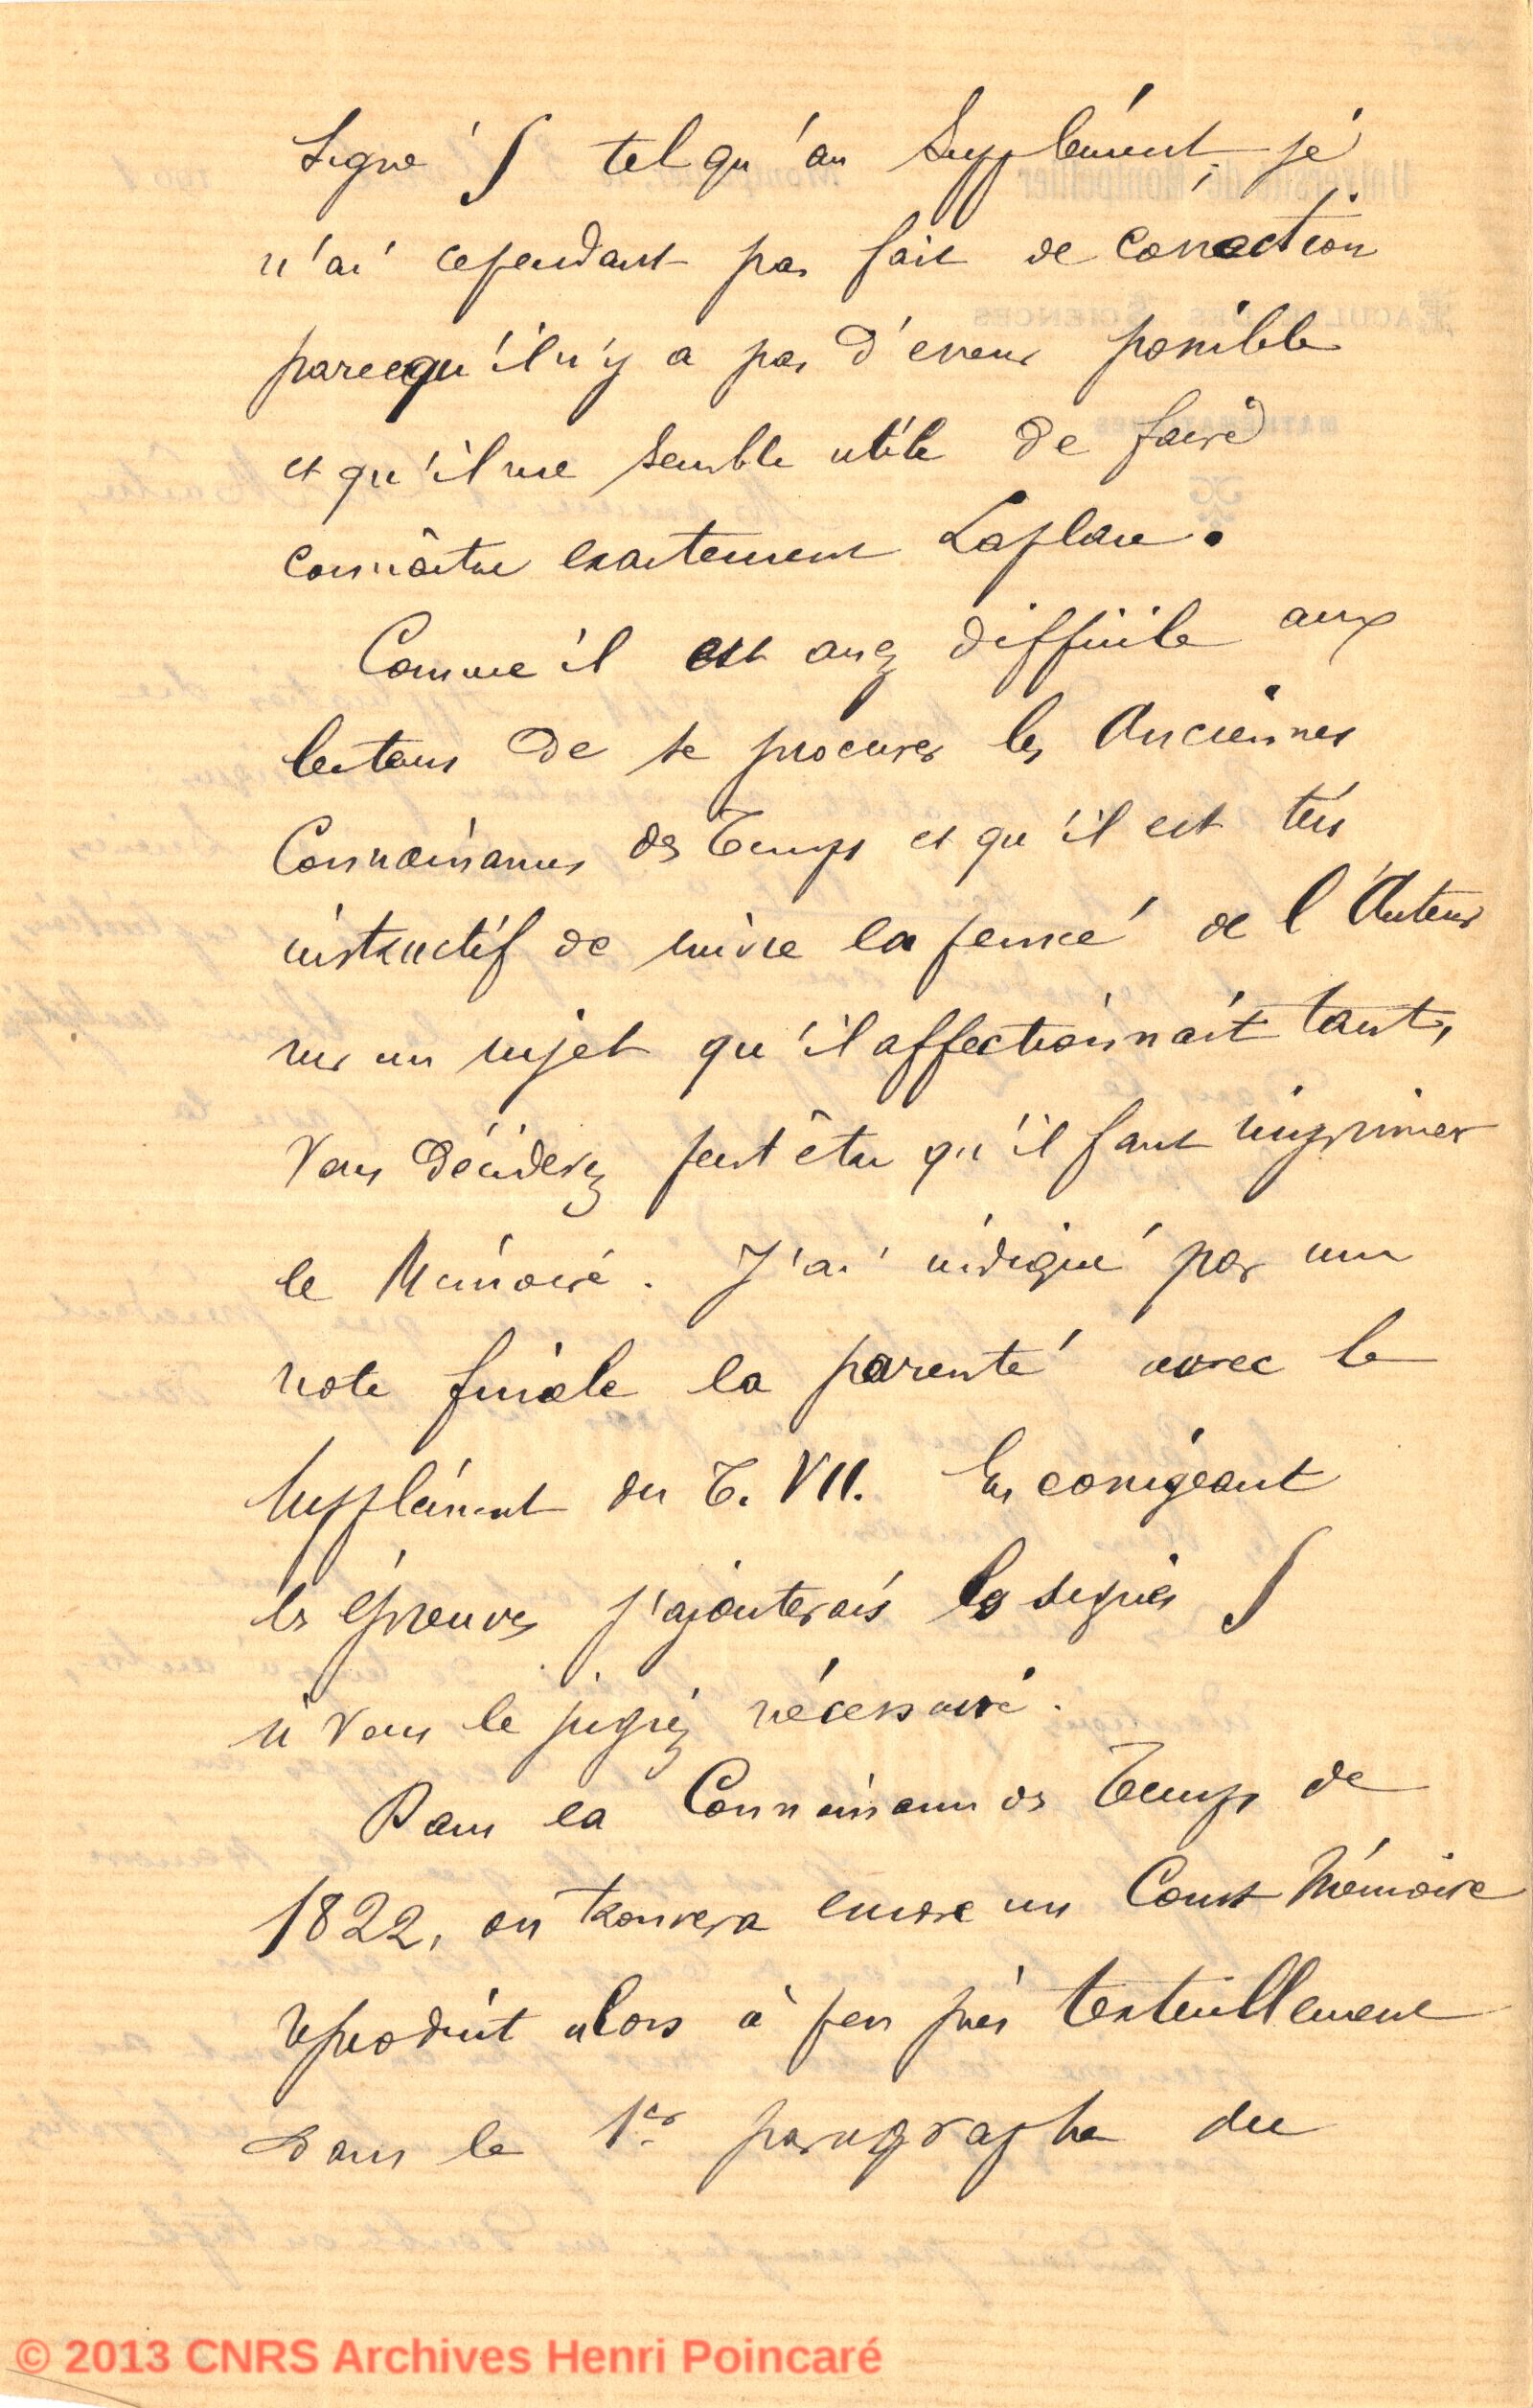 Signe ∫ tel qu'au Supplément, je
n'ai cependant pas fait de correction
parcequ'il n'y a pas d'erreur possible
et qu'il me semble utile de faire
connaître exactement Laplace.
Comme il est assez difficile aux
lecteurs de se procurer les Anciennes
Connaissances des Temps et qu'il est très
instructif de suivre la pensée de l'Auteur
sur un sujet qu'il affectionnait tant,
Vous déciderez peut être qu'il faut imprimer
le Mémoire. J'ai indiqué par une
note finale la parenté avec le
Supplément du T. VII. En corrigeant
les épreuves j'ajouterais les signes ∫
si Vous le jugiez nécessaire.
Dans la Connaissance des Temps de
1822, on trouvera encore un Court Mémoire
reproduit alors à peu près textuellement
dans le 1er paragraphe du
© 2013 CNRS Archives Henri Poincaré